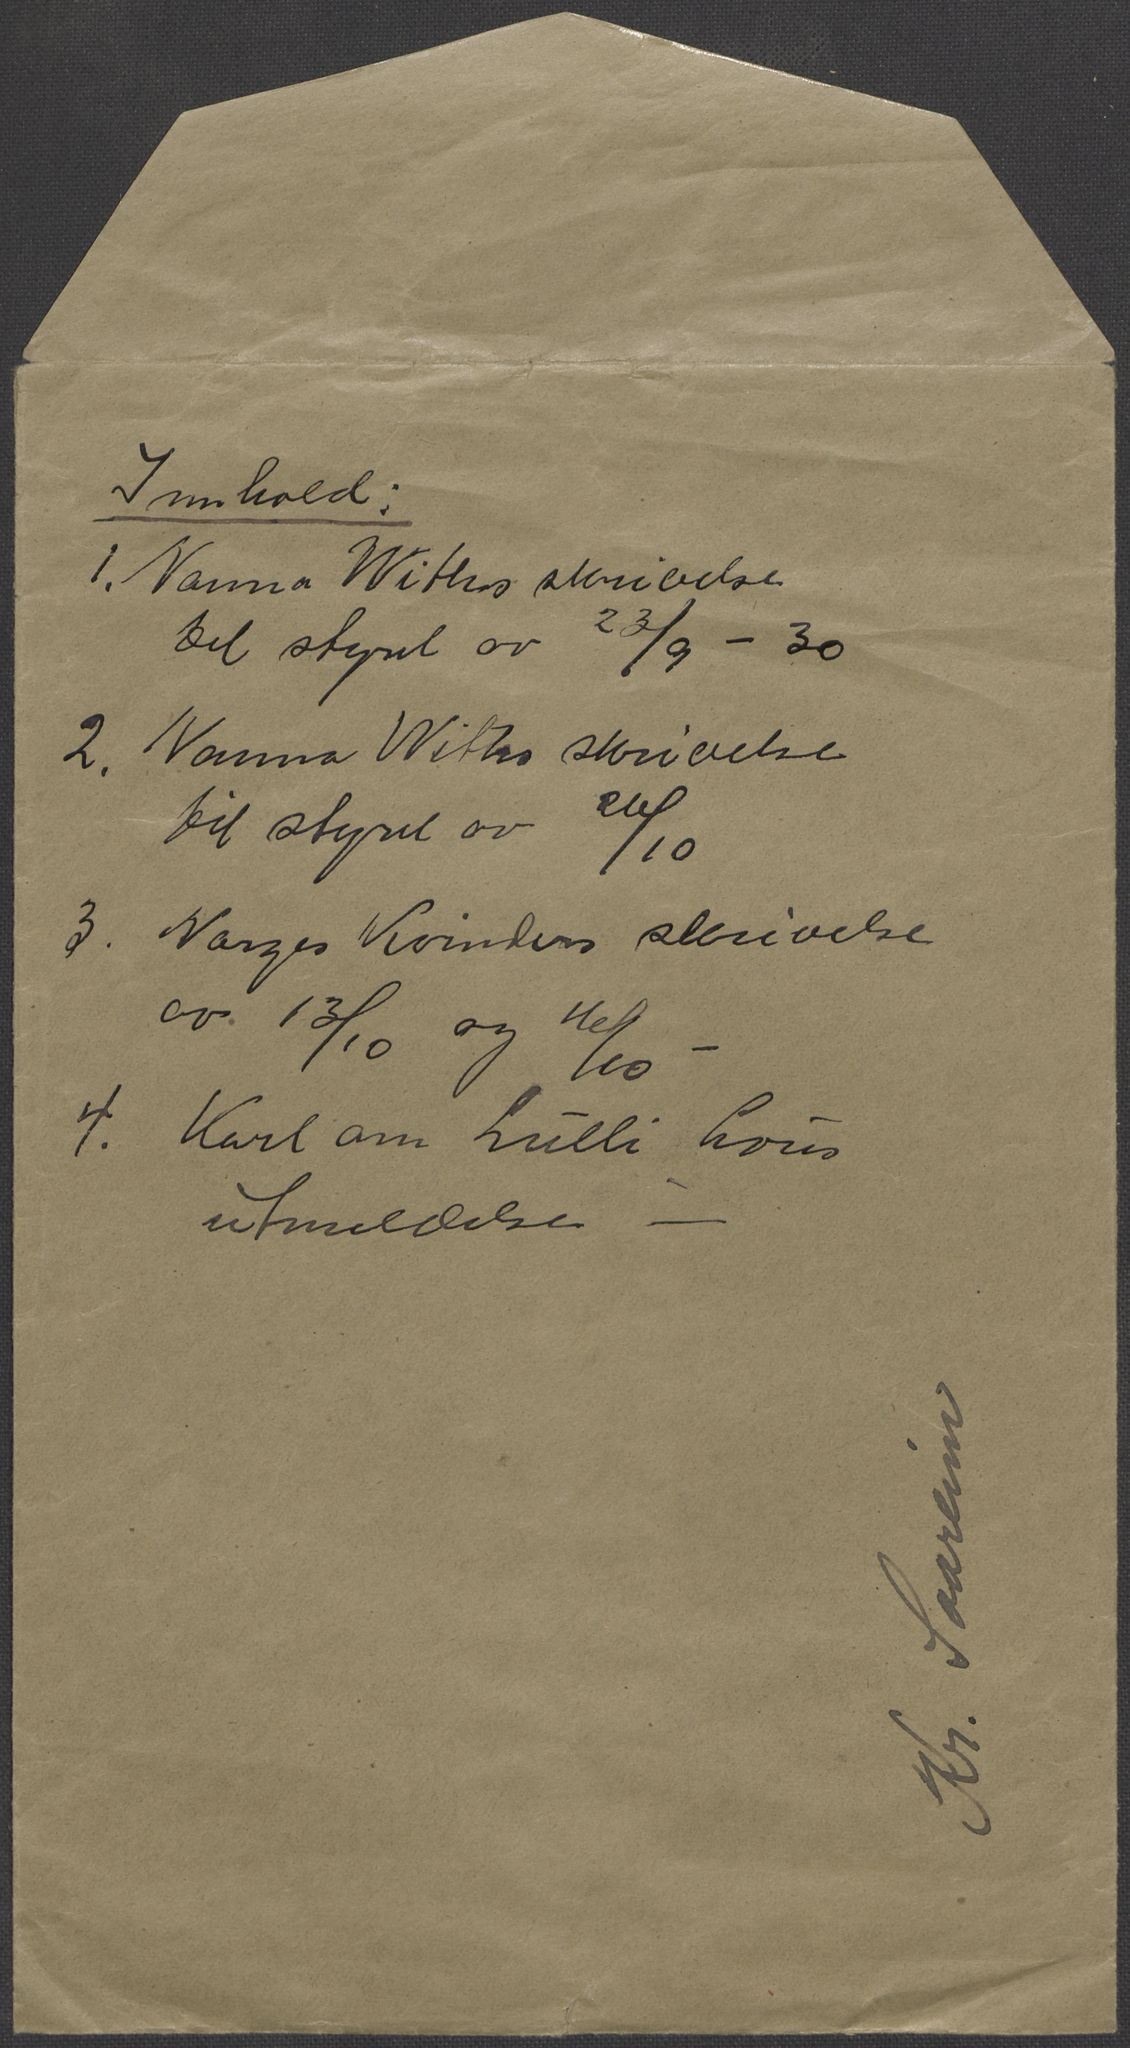 Innhold:
1. Nanna Withs skrivelse
til styret av 23/9 - 30
2. Nanna Withs skrivelse
til styret av /10
3. Norges Kvinders skrivelse
av 13/10 og /10 -
4. Karl om Lulli Lous
utmeldelse -
Kr.